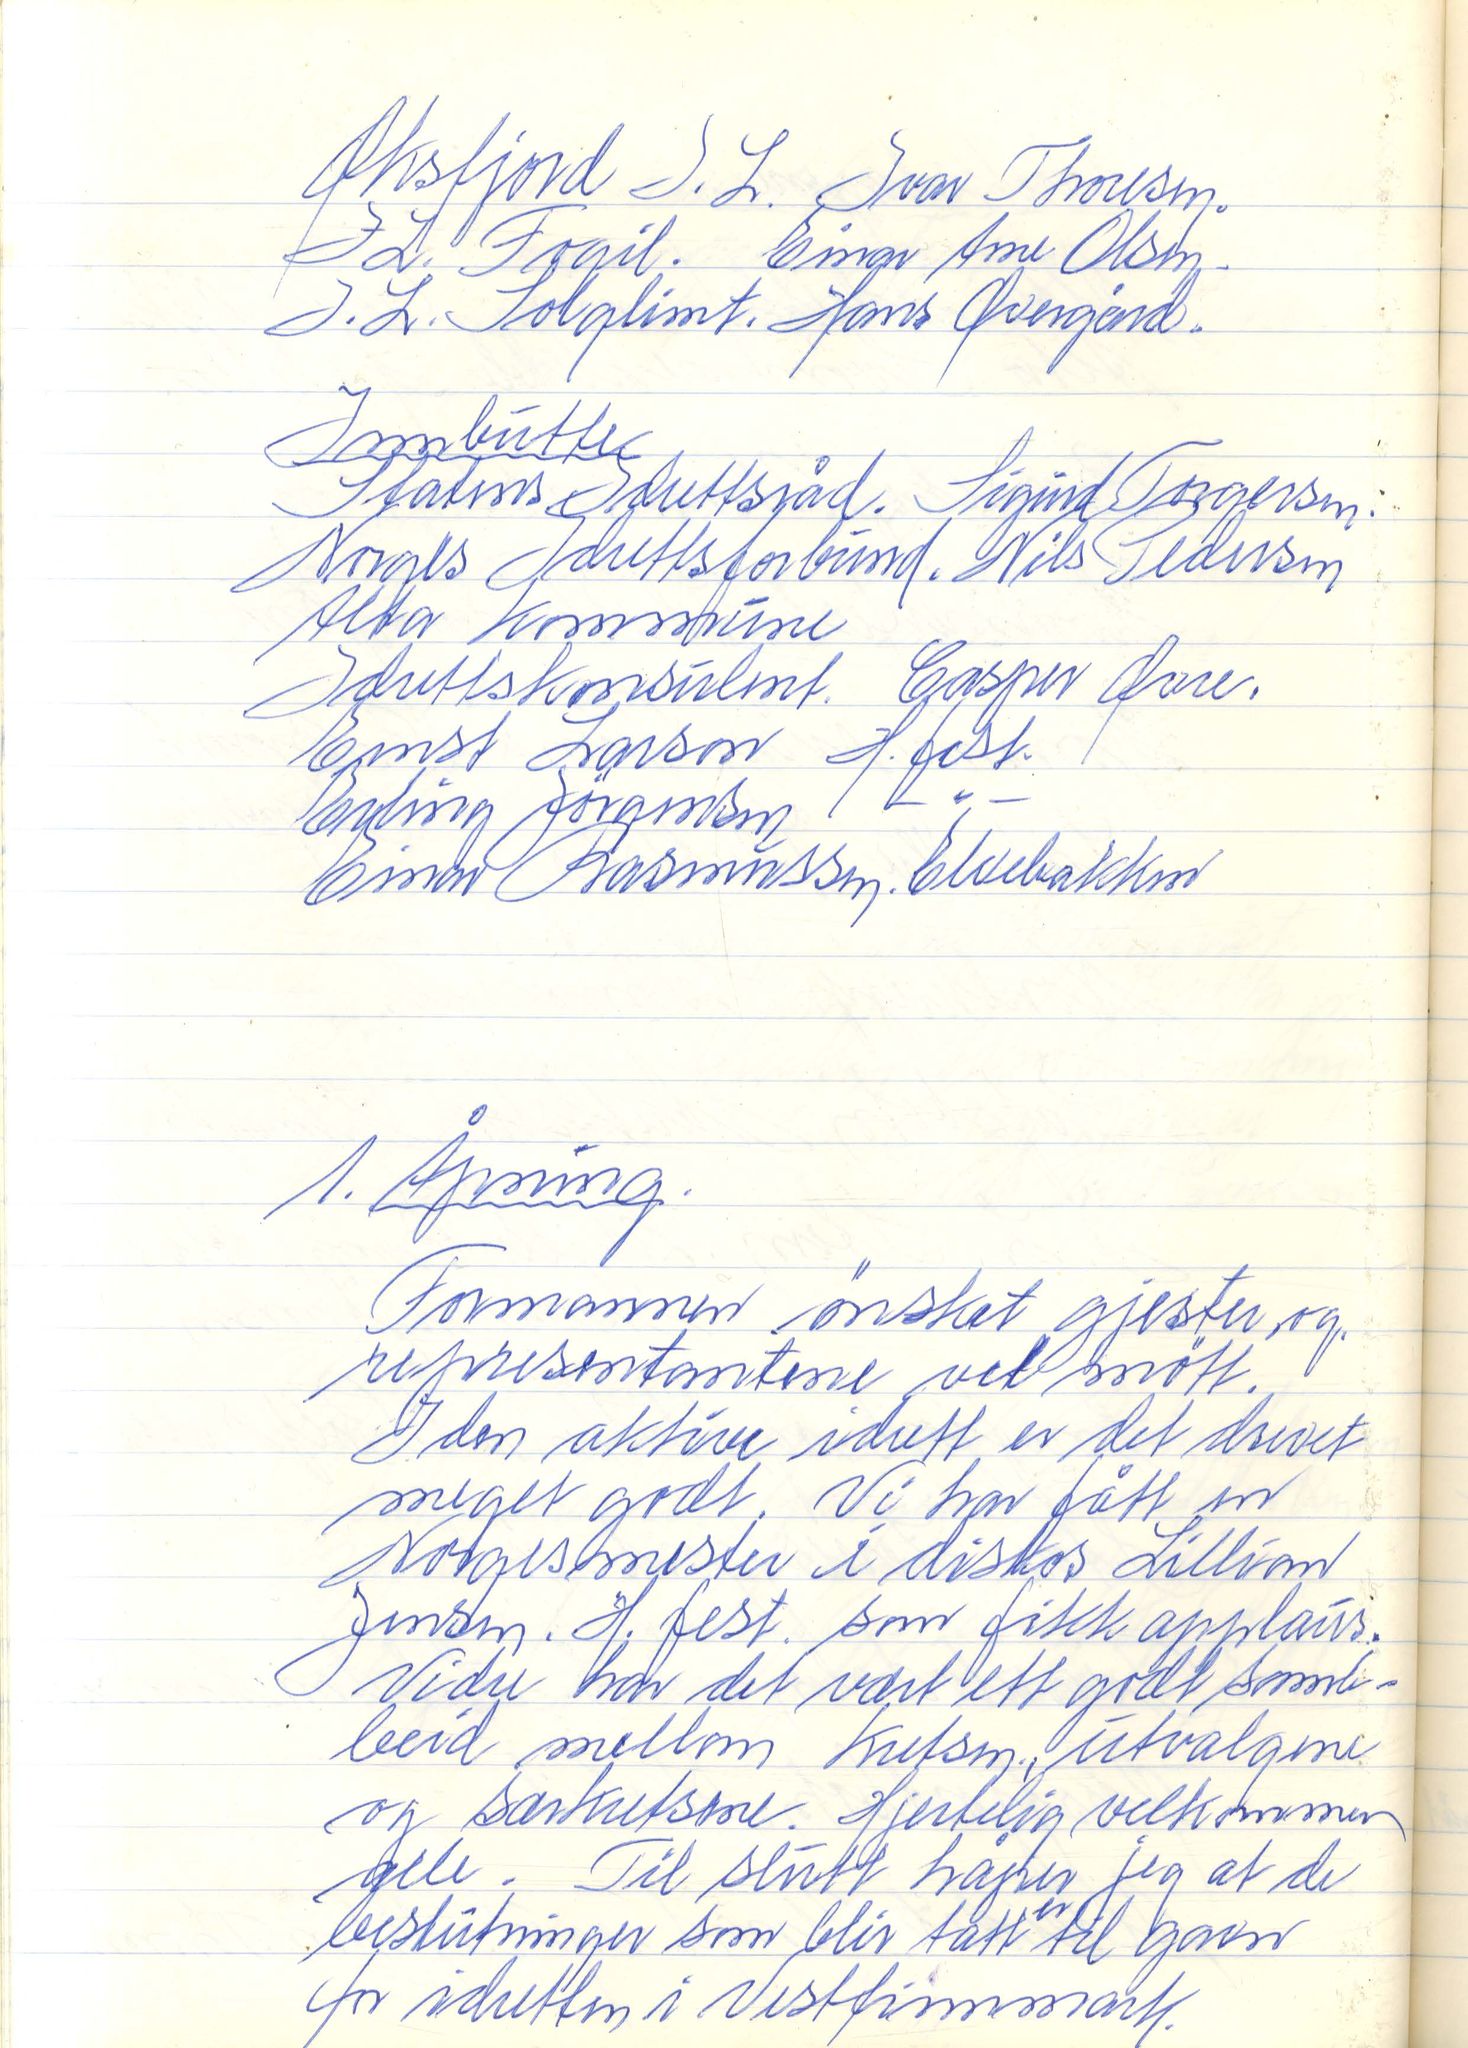 Øksfjord I. L. Ivar Thomsen.
I L. Frogil. Einar Arne Olsen.
I. L. Solglimt. Hans Øvergård.
Innbutte
Statens Idrettsråd. Sigurd Torgersen.
Norges Idrettsforbund. Nils Pedersen
Alta kommune
Idrettskonsulent. Casper Øvre.
Ernst Larson H.fest.
Erling Jörgensen — " —
Einar Rasmussen. Elvebakken
1. Åpning.
Formannen önsket gjester og
representantene vel mött.
I den aktive idrett er det drevet
meget godt. Vi har fått en
Norgesmester i diskos Lillian
Jensen. H. fest. som fikk applaus.
Vidre har det vært ett godt samb-
beid mellom kretsen, utvalgene
og særkretsene. Hjertelig velkommen
alle. Til slutt håper jeg at de
beslutninger som blir tatt er til gavn
for idretten i Vestfinnmark.